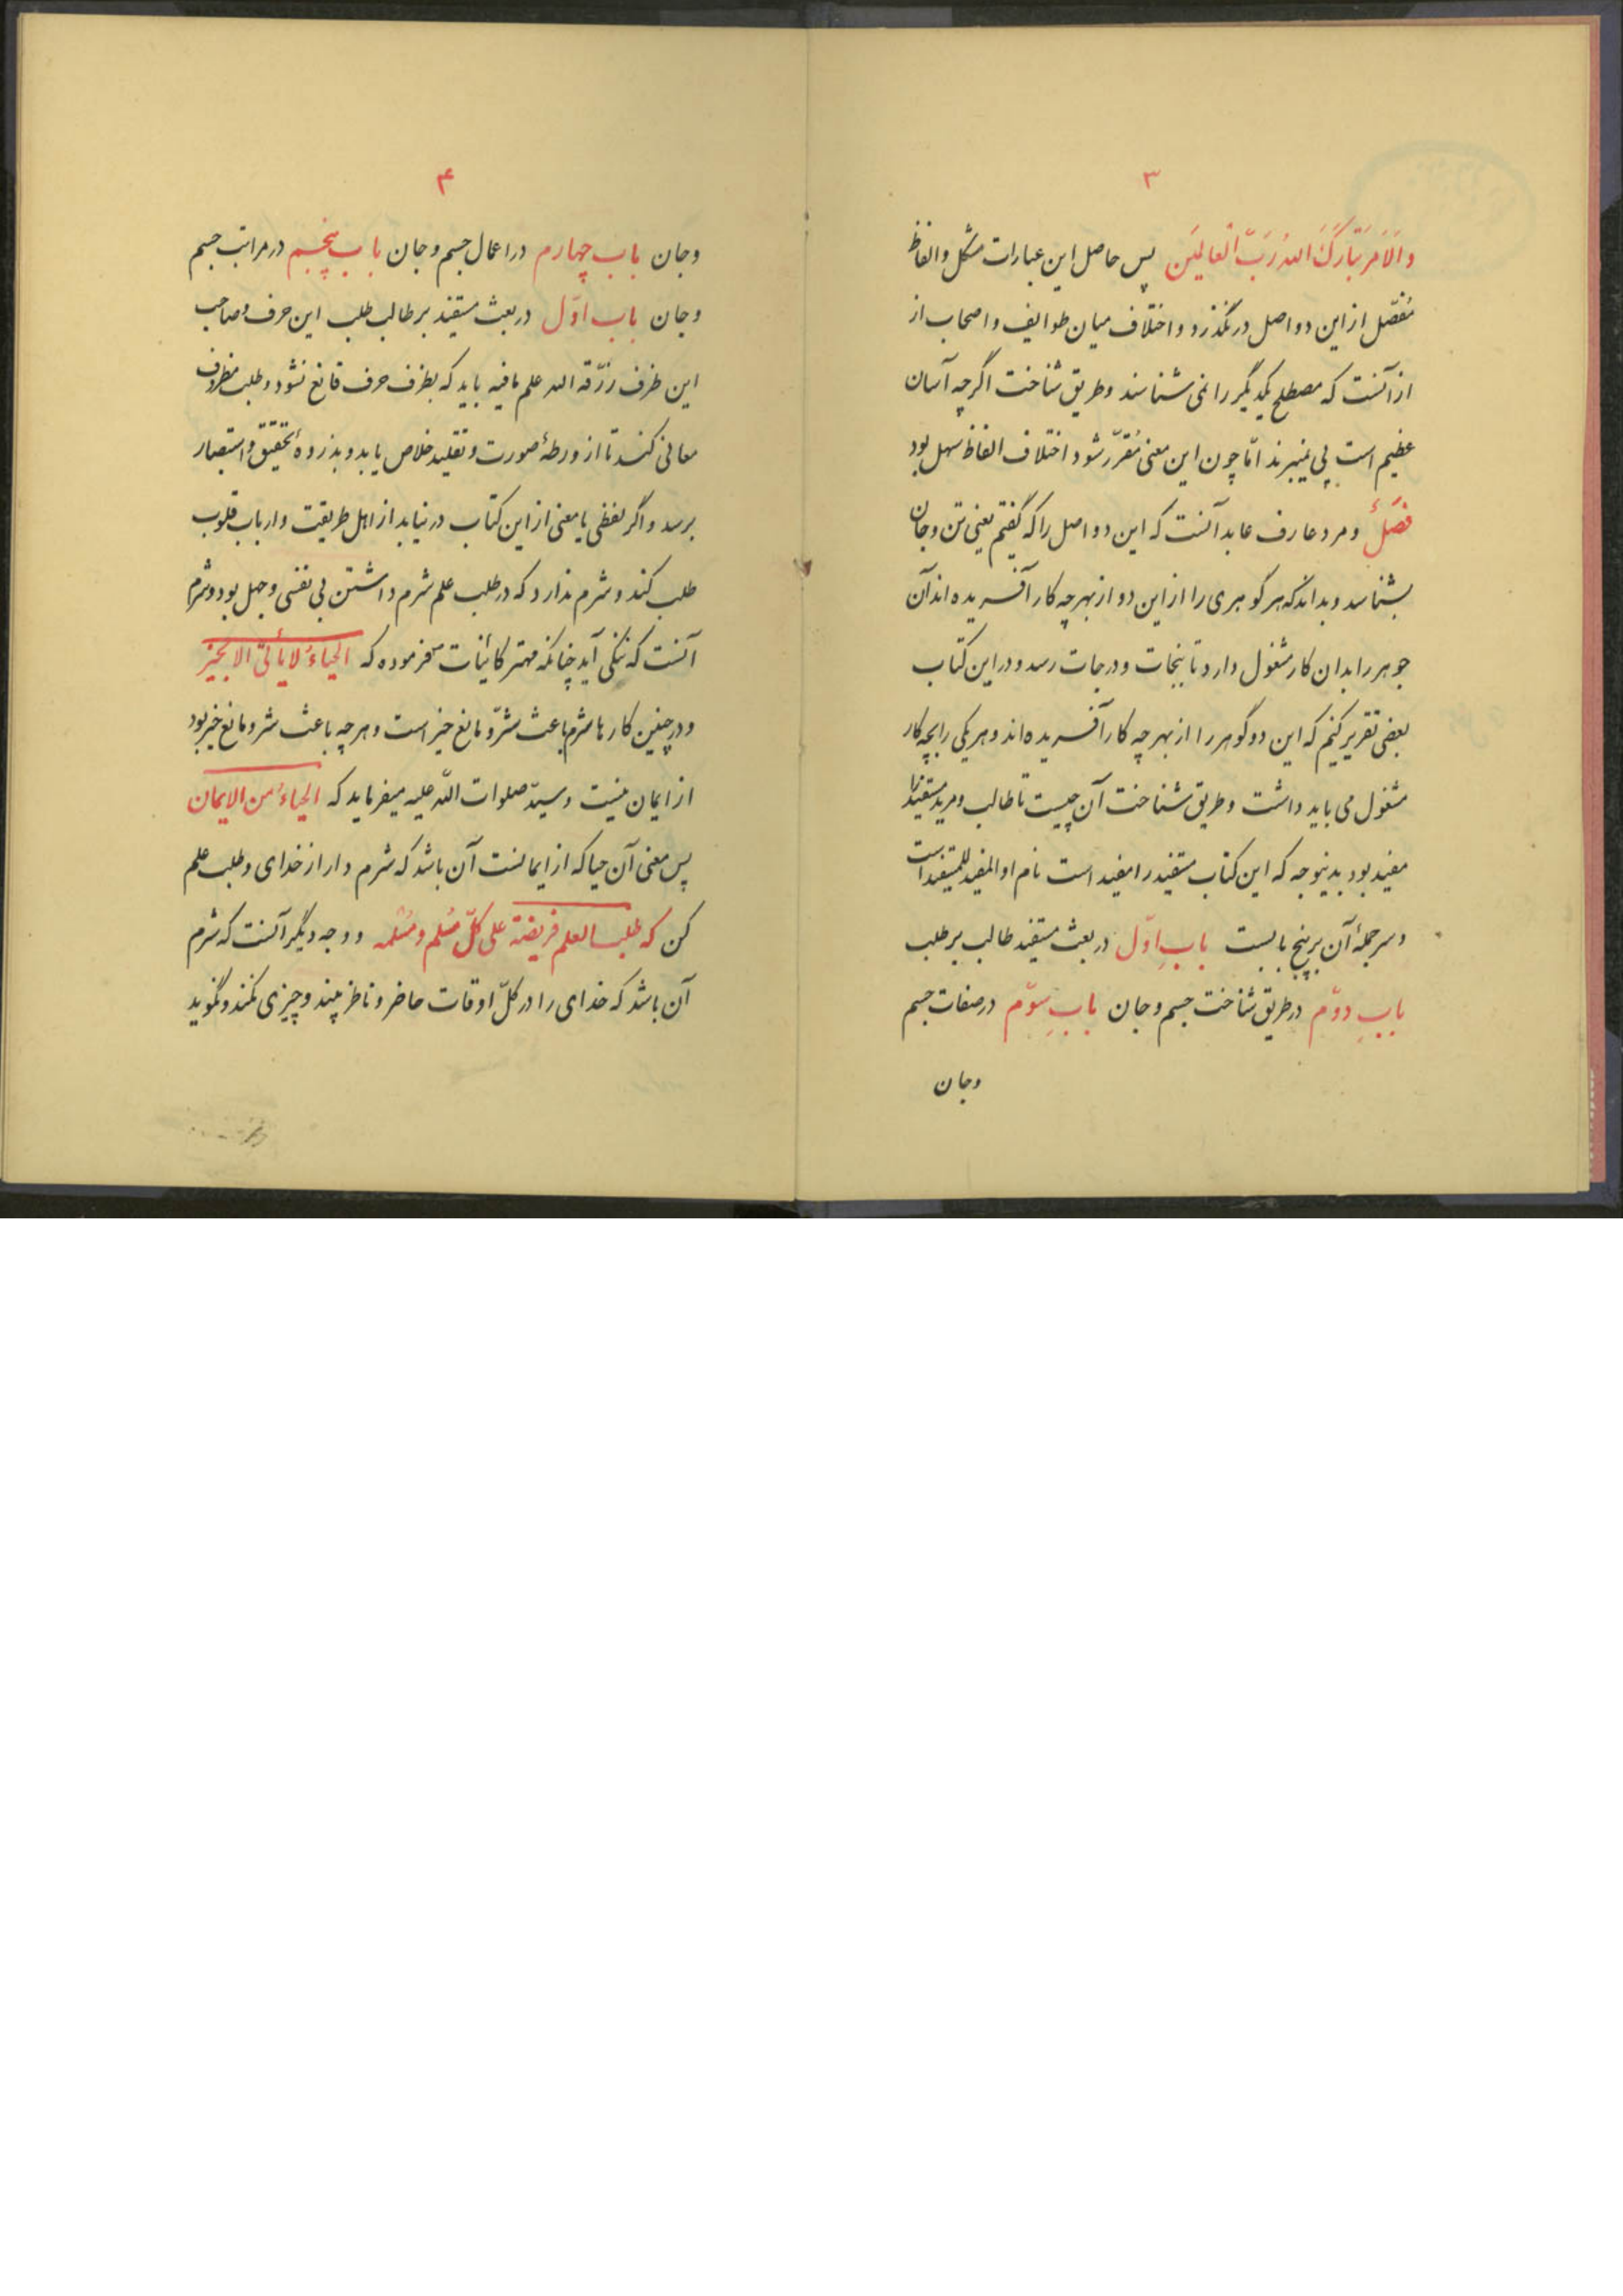 ۳
والامر تبارک الله ربّ العالمین پس حاصل این عبارات مشکل و الفاظ
مفصّل از این دو اصل درنگذرد و اختلاف میان طوایف و اصحاب از
از آنست که مصطلح یکدیگر را نمی شناسند و طریق شناخت اگرچه آسان
عظیم است پی نمیبرند امّا چون این معنی مُقرّر شود اختلاف الفاظ سهل بود
فصلٌ و مرد عارف عابد آنست که این دو اصل را که گفتم یعنی تن و جان
بشناسد و بداند که هر گوهری را از این دو از بهر چه کار آفریده اند آن
جوهر را بدان کار مشغول دارد تا بنجات و درجات رسد و در این کتاب
بعضی تقریر کنیم که این دو گوهر را از بهر چه کار آفریده اند و هر یکی را بچه کار
مشغول می باید داشت و طریق شناخت آن چیست تا طالب و مرید مستفید را
مفید بود بدینوجه که این کتاب مستفید را مفید است نام او المفید للمستفید است
و سر جملهٔ آن بر پنج بابست بابِ اوّل در بعث مستفید طالب بر طلب
بابِ دوّم در طریق شناخت جسم و جان بابِ سوّم در صفات جسم
و جان
۴
و جان باب چهارم در اعمال جسم و جان باب پنجم در مراتب جسم
و جان باب اوّل در بعث مستفید بر طالب طلب این حرف و صاحب
این ظرف رزّقه الله علم مافیه باید که بظرف حرف قانع نشود و طلب مظروف
معانی کند تا از ورطهٔ صورت و تقلید خلاص یابد و بذروهٔ تحقیق و استبصار
برسد و اگر لفظی یا معنی از این کتاب در نیابد از اهل طریقت و ارباب قلوب
طلب کند و شرم ندارد که در طلب علم شرم داشتن بی نفسی و جهل بود و شرم
آنست که نیکی آید چنانکه مهتر کائنات فرموده که الحیاءُ لا یأتی الا بخیر
و در چنین کارها شرم باعث شرّ و مانع خیر است و هر چه باعث شر و مانع خیر بود
از ایمان نیست و سیّد صلوات اللّه علیه میفرماید که الحیاءُ من الایمان
پس معنی آن حیا که از ایمانست آن باشد که شرم دار از خدای و طلب علم
کن که طلب العلم فریضة علی کلّ مُسلم و مُسلمه و وجه دیگر آنست که شرم
آن باشد که خدای را در کلّ اوقات حاضر و ناظر بیند و چیزی نکند و نگوید